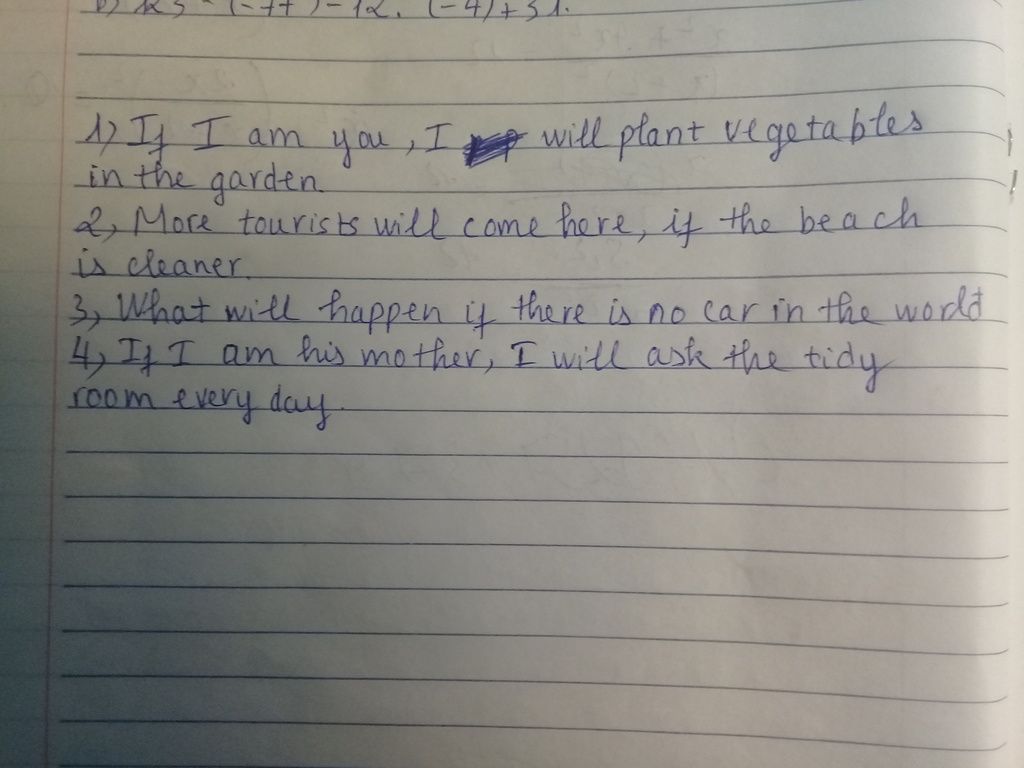 1) If I am you, I will plant vegetables
in the garden.
2, More tourists will come here, if the beach
is cleaner.
3, What will happen if there is no car in the world
4, If I am his mother, I will ask the tidy
room every day.